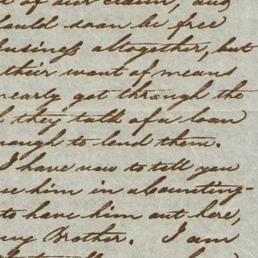 of our claim, and
would soon be free
business altogether, but
their want of means
nearly got through the
they talk of a loan
enough to lend them.
I have now to tell you
him in a Counting-
to have him out here,
my Brother. I am